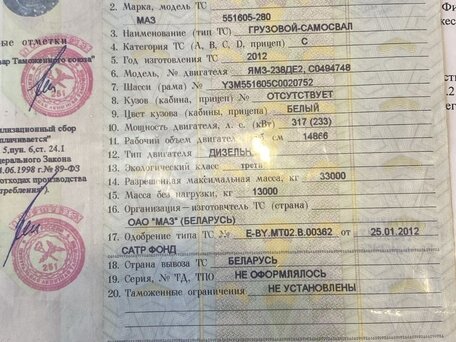 2. Марка, модель ТС
МАЗ 551605-280
3. Наименование (тип ТС) ГРУЗОВОЙ-САМОСВАЛ
4. Категория ТС (А, В, С, D, прицеп) С
5. Год изготовления ТС 2012
6. Модель, № двигателя ЯМЗ-238ДЕ2, С0494748
7. Шасси (рама) № Y3M551605C0020752
8. Кузов (кабина, прицеп) № ОТСУТСТВУЕТ
9. Цвет кузова (кабины, прицепа) БЕЛЫЙ
10. Мощность двигателя, л. с. (кВт) 317 (233)
11. Рабочий объем двигателя, 14866
12. Тип двигателя ДИЗЕЛЬН
13. Экологический класс трет
14. Разрешенная максимальная масса, кг 33000
15. Масса без нагрузки, кг 13000
16. Организация-изготовитель ТС (страна)
ОАО "МАЗ" (БЕЛАРУСЬ)
17. Одобрение типа ТС № E-BY.MT02.B.00362 от 25.01.2012
САТР ФОНД
18. Страна вывоза ТС БЕЛАРУСЬ
19. Серия, № ТД, ТПО НЕ ОФОРМЛЯЛОСЬ
20. Таможенные ограничения НЕ УСТАНОВЛЕНЫ
ные отметки
ар Таможенного союза"
илизационный сбор
плачивается"
5, пун.6, ст. 24.1
дерального Закона
.06.1998 г. № 89-ФЗ
отходах производства
требления ).
251